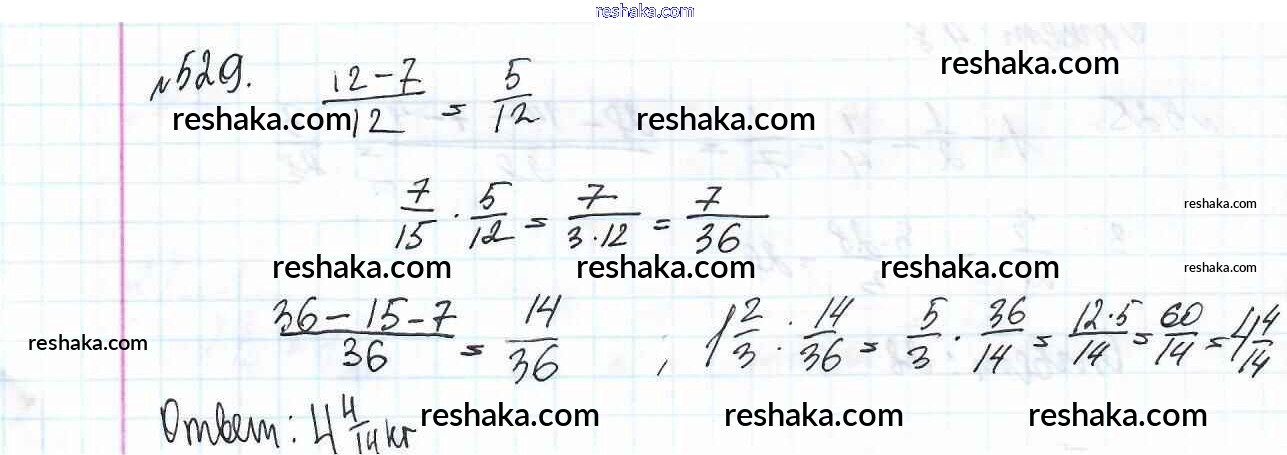 reshaka.com
№529. (12-7)/12 = 5/12
reshaka.com
reshaka.com reshaka.com
7/15 · 5/12 = 7/(3·12) = 7/36
reshaka.com
reshaka.com reshaka.com reshaka.com reshaka.com
(36-15-7)/36 = 14/36 ; 1 2/3 : 14/36 = 5/3 · 36/14 = (12·5)/14 = 60/14 = 4 4/14
reshaka.com
Ответ: 4 4/14 кг
reshaka.com reshaka.com reshaka.com